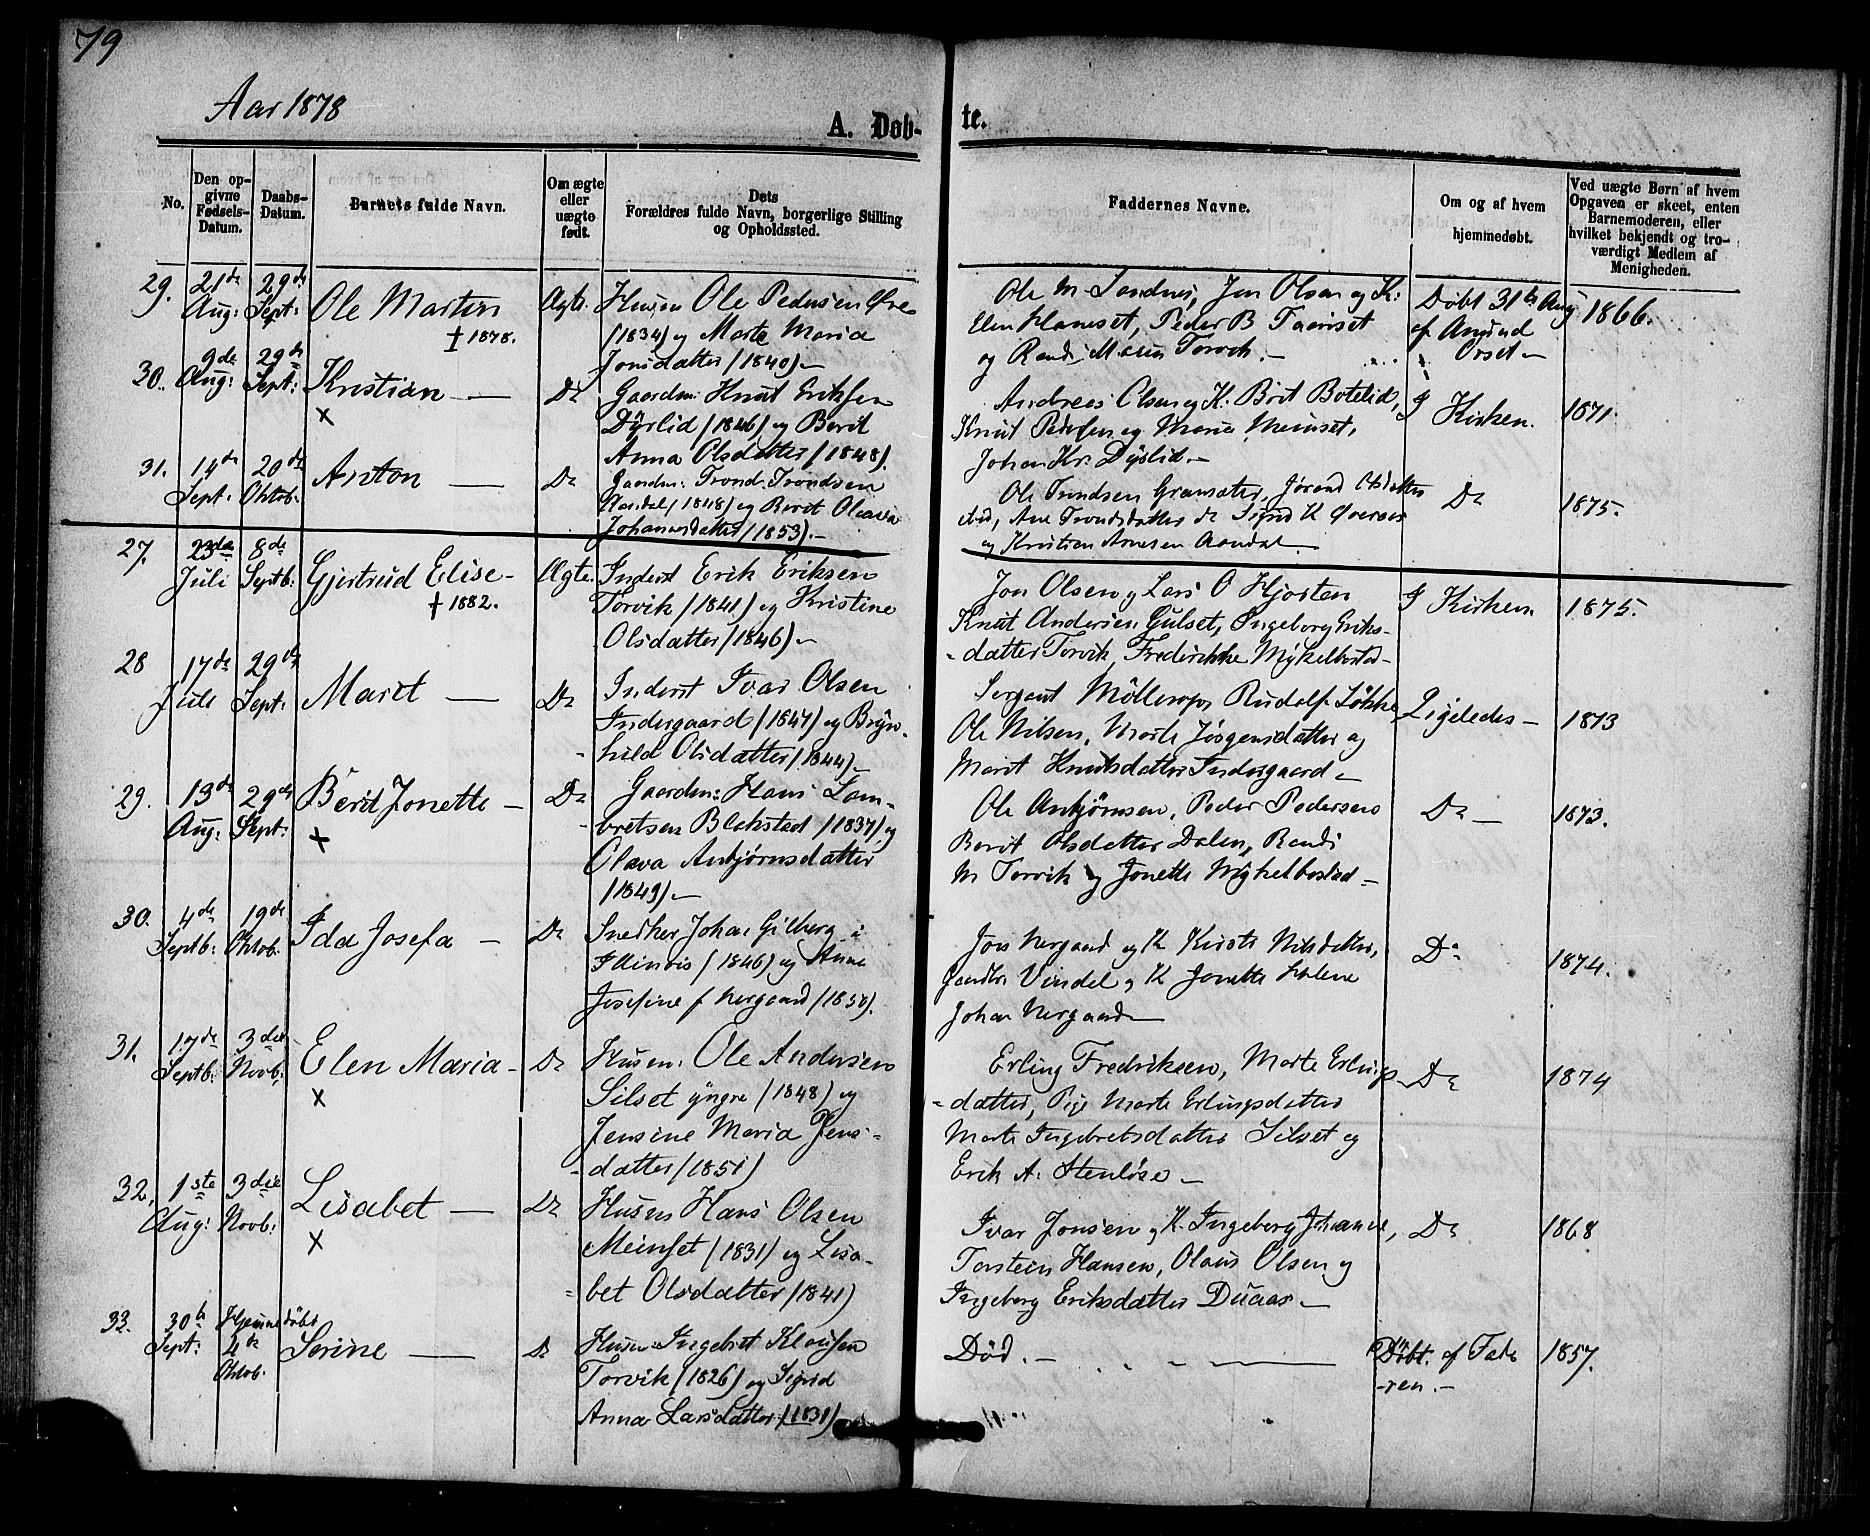 79
Aar 1878
A. Døb-te.
No.
Den opgivne Fødsels-Datum.
Daabs-Datum.
Barnets fulde Navn.
Om ægte eller uægte født.
Dets Forældres fulde Navn, borgerlige Stilling og Opholdssted.
Faddernes Navne.
Om og af hvem hjemmedøbt.
Ved uægte Børn af hvem Opgaven er skeet, enten Barnemoderen, eller hvilket bekjendt og troværdigt Medlem af Menigheden.
29.
21de Aug:
29de Sept:
Ole Martin
† 1878.
Ægte.
Husm Ole Pedersen Øre
(1834) og Marte Maria
Jonsdatter (1840) -
Ole M Sandnes, Jon Olsen og K:
Elen Haneset, Peder B
og Randi Torvik. -
Døbt 31te Aug
af Amund
Orset -
1866.
30.
9de Aug:
29de Sept:
Kristian -
x
Do
Gaardm: Knut Eriksen
Dyrlid (1846) og Berit
Anna Olsdatter (1848).
Andreas Olsen og K. Brit Botelid,
Knut Pedersen og Marie Meinset,
Johan Kr. Dyrlid. -
I Kirken.
1871.
31.
14de Sept:
20de Oktob:
Anton -
Do
Gaardm: Trond Trondsen
(1848) og Berit Olava
Johannesdatter (1853). -
Ole Trondsen Gransæter, Jørand Olsdatter
ibid, Ane Trondsdatter do Sigrid K
og Kristian Arnesen Aandal.
Do
1875.
27.
23de Juli
8de Septb:
Gjertrud Elise -
† 1882.
Ægte.
Inderst Erik Eriksen
Torvik (1841) og Kristine
Olsdatter (1846) -
Jon Olsen og Lars O Hjorten
Knut Andersen Gulset, Ingeborg Eriks-
-datter Torvik, Frederikke Mykelbostad -
I Kirken
1875.
28
17de Juli
29de Sept:
Marit -
Do
Inderst Ivar Olsen
Indergaard (1847) og Bryn-
-hild Olsdatter (1844) -
Sergant Møllerop, Rudolf Løkke
Ole Nilsen, Marte Jørgensdatter og
Marit Knutsdatter Indergaard -
Ligeledes -
1873
29.
13de Aug:
29de Sept:
Berit Jonette -
x
Do
Gaardm: Hans Lam-
-bretsen Blekstad (1837) og
Olava Anbjørnsdatter
(1849) -
Ole Anbjørnsen, Peder Pedersen
Berit Olsdatter Dalen, Randi
M Torvik og Jonette Mykelbostad -
Do -
1873.
30.
4de Septb:
19de Oktob:
Ida Josefa -
Do
Snedker Johan Gilberg i
Illinois (1846) og Anne
Josefine f Nergaard (1850).
Jon Nergaard og K Kirsti Nilsdatter,
Vindel og K Jonette Halene
Johan Nergaard -
Do
1874.
31.
17de Septb:
3die Novb:
Elen Maria -
x
Do
Husm: Ole Andersen
Silset yngre (1848) og
Jensine Maria Jens-
-datter (1851)
Erling Fredriksen, Marte Erlings-
-datter, Pige Marte Erlingsdatter
Marte Ingebretsdatter Silset og
Erik A. Stenløse -
Do
1874
32.
1ste Aug:
3die Novb:
Lisabet -
x
Do
Husm Hans Olsen
Meinset (1831) og Lisa-
-bet Olsdatter (1841)
Ivar Jonsen og K. Ingeborg Johanne,
Torstein Hansen, Olaus Olsen og
Ingeborg Eriksdatter Duaas -
Do
1868
33.
30te Sept:
Hjemmedøbt
4de Oktob.
Serine -
Do
Husm: Ingebret Klausen
Torvik (1826) og Sigrid
Anna Larsdatter (1831)
Død. -
Døbt. af Fade-
-ren. -
1857.